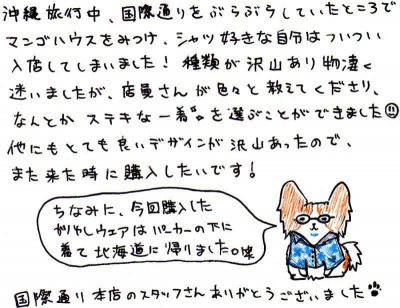 沖縄旅行中、国際通りをぶらぶらしていたところで
マンゴハウスをみつけ、シャツ好きな自分はついつい
入店してしまいました！種類が沢山あり物凄く
迷いましたが、店員さんが色々と教えてくださり、
なんとか ステキな一着"を選ぶことができました
他にもとても良いデザインが沢山あったので、
また来た時に購入したいです！
ちなみに、今回購入した
かりゆしウェアはパーカーの下に
着て北海道に帰りました。笑
国際通り本店のスタッフさんありがとうございました